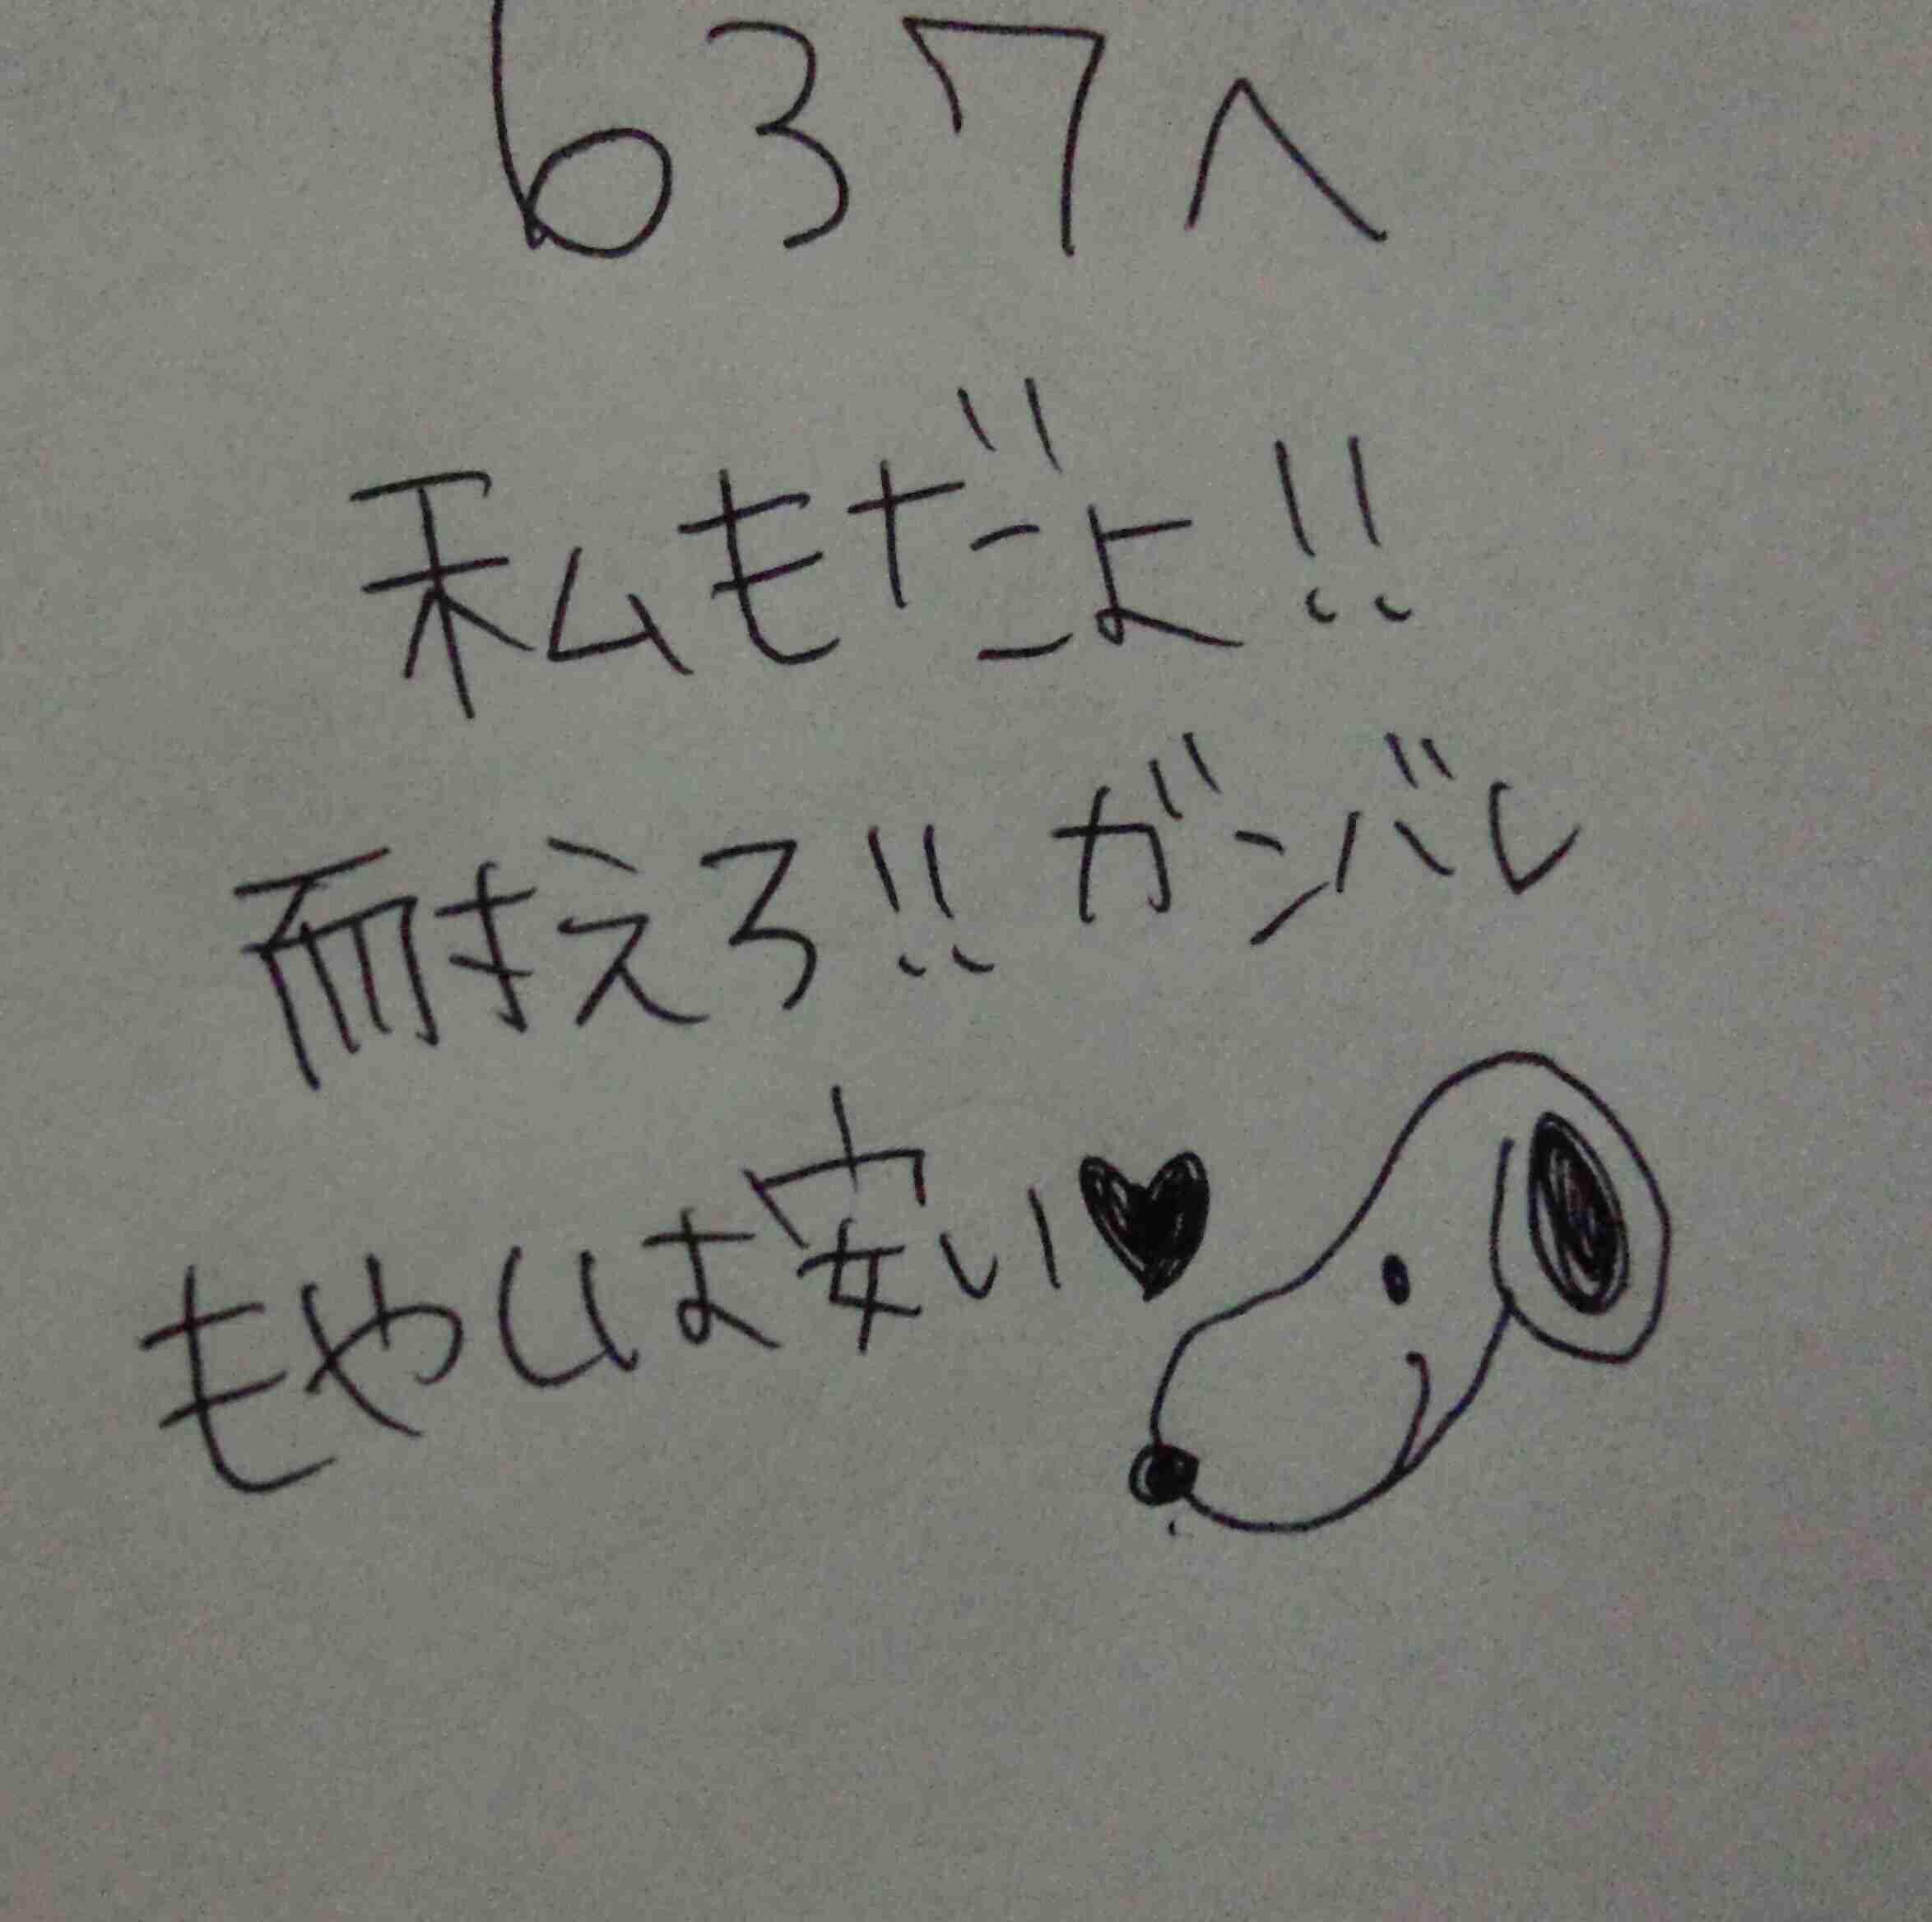 637へ
私もだよ!!
耐えろ!! ガンバレ
もやしは安い♥